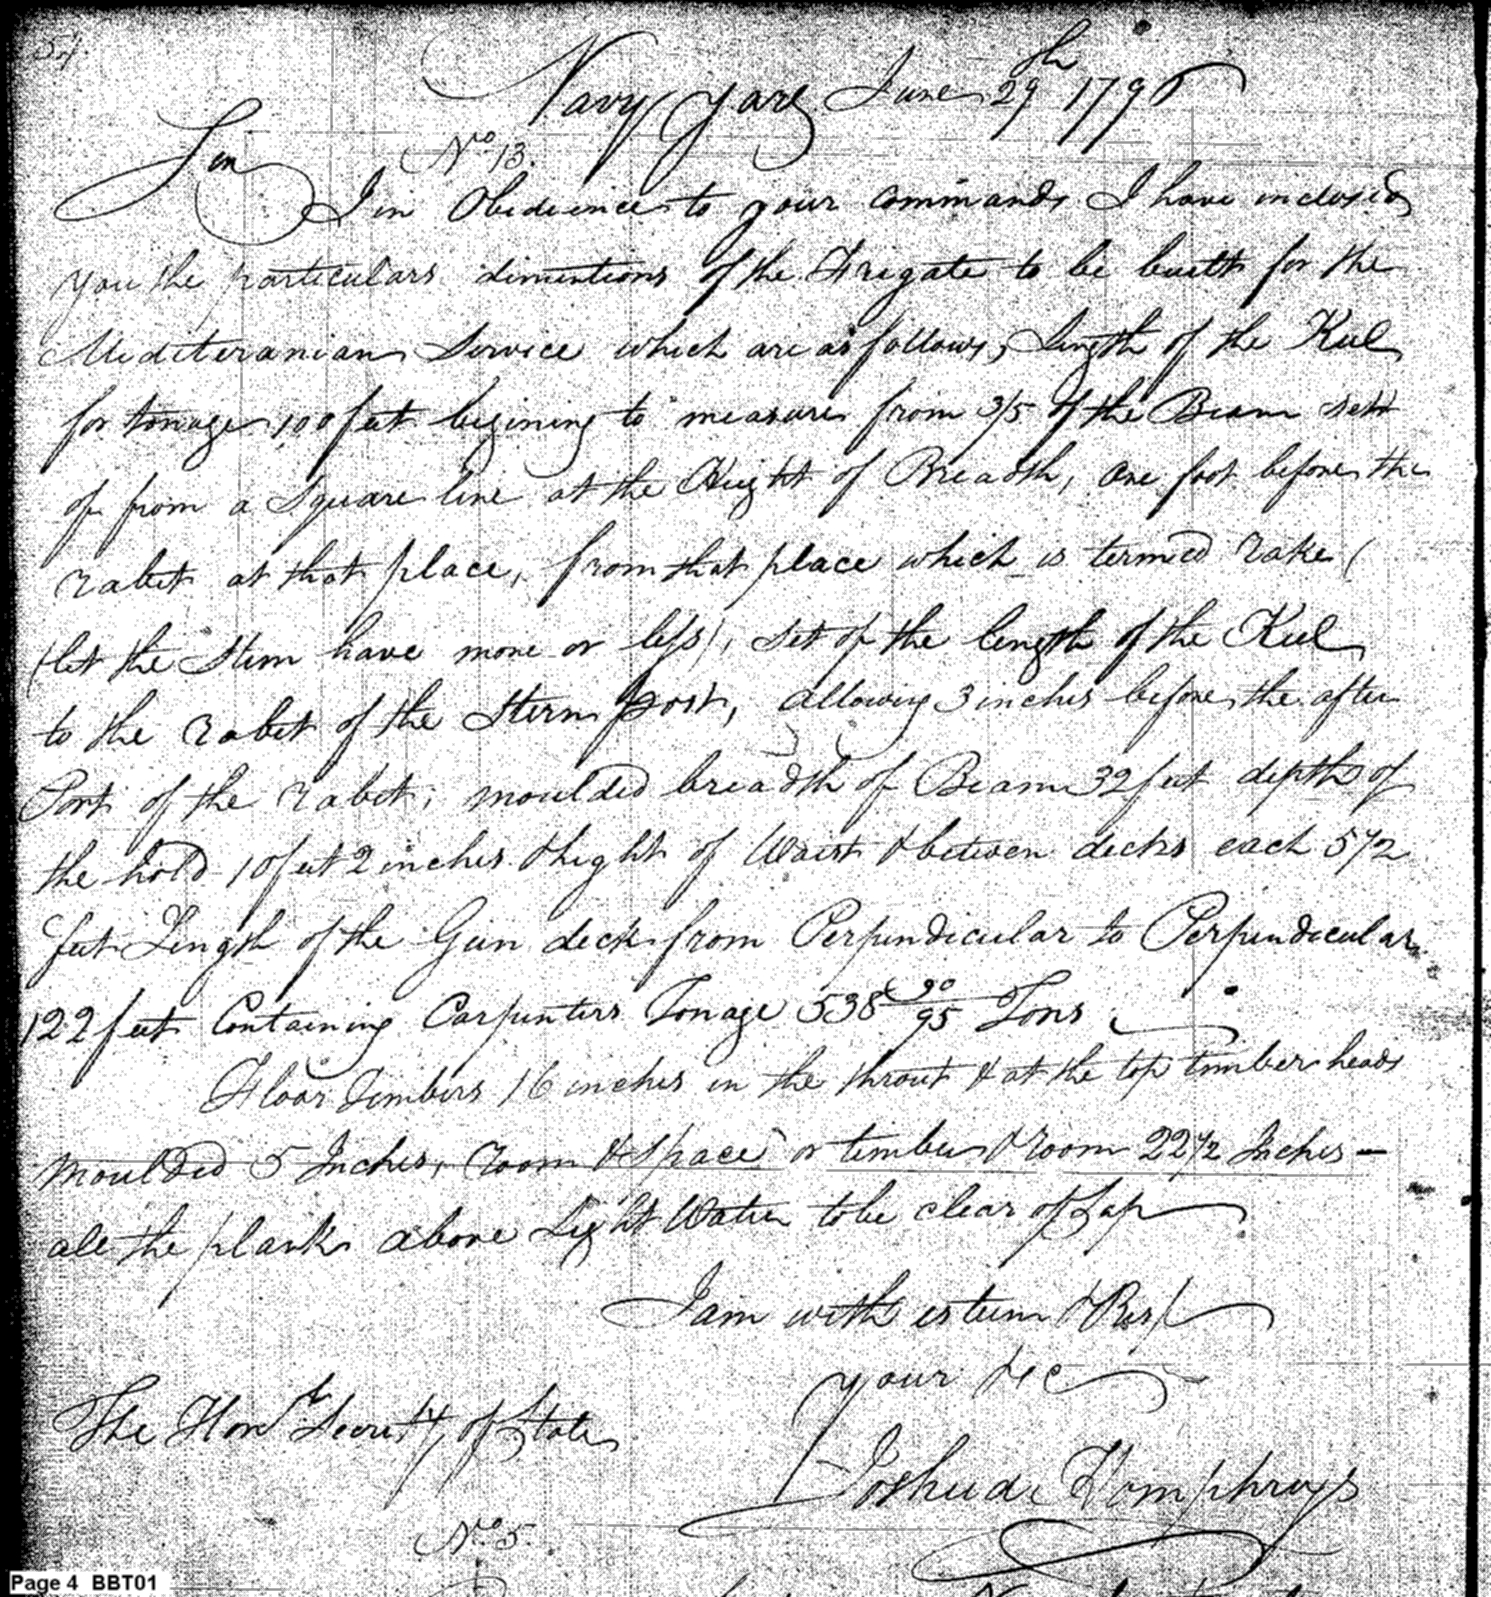 54
Navy yard June 29th 1796
No 13.
Sir
I in Obedience to your commands I have inclosed
you the particulars dimentions of the Frigate to be built for the
Mediteranian Service which are as follows, Length of the Keel
for tonage 100 feet begining to measure from 3/5 of the Beam sett
of from a square line at the Hight of Breadth, one foot before the
rabet at that place, from that place which is termed rake (
(let the Stem have more or less), set of the length of the Keel
to the rabet of the Stern post, allowing 3 inches before the after
Part of the rabet; moulded breadth of Beam 32 feet depth of
the hold 10 feet 2 inches & hight of Waist & between decks each 5 1/2
feet Length of the Gun deck from Perpendicular to Perpendicular
122 feet Containing Carpenters Tonage 538 90/95 Tons
Floor Timbers 16 inches in the throat & at the top timber heads
moulded 5 Inches, room & space or timber & room 22 1/2 Inches —
all the plank above Light Water to be clear of Sap
I am with esteem & Resp
your &c
The Honl Secrety of State
Joshua Homphreys
No 5.
Page 4 BBT01